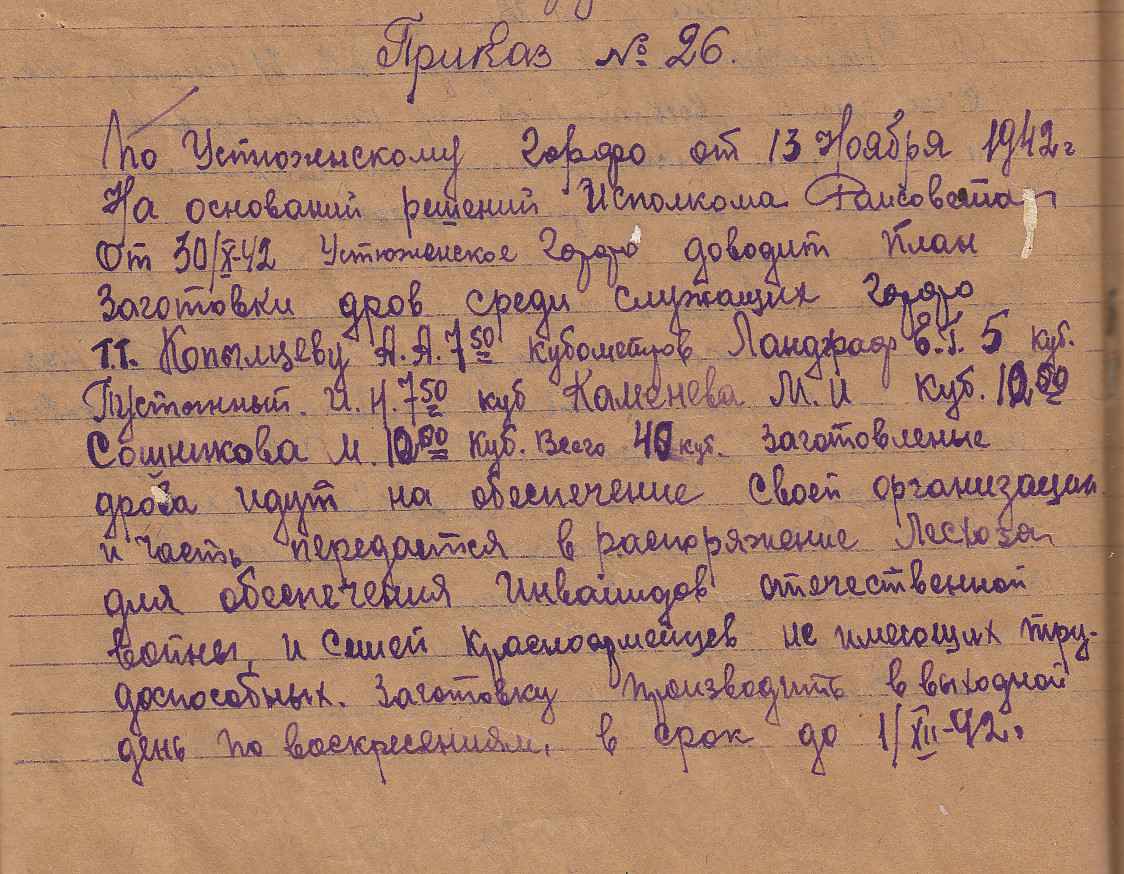 Приказ № 26.
По Устюженскому Горфо от 13 Ноября 1942 г
На оснований решений Исполкома Райсовета
От 30/X-42 Устюженское Горфо доводит План
Заготовки дров среди служащих Горфо
т.т. Копылцеву А.А. 7 50 кубометров Ландграф Е.Г. 5 куб.
Пустынный. И.Н. 7 50 куб Каменева М.И куб. 10 00
Сошникова М. 10 00 куб. Всего 40 куб. Заготовленые
дрова идут на обеспечение своей организации
и часть передается в распоряжение Лесхоза
для обеспечения Инвалидов отечественной
войны, и семей Красноармейцев не имеющих тру-
доспособных. Заготовку производить в выходной
день по воскресениям, в срок до 1/XII-42.